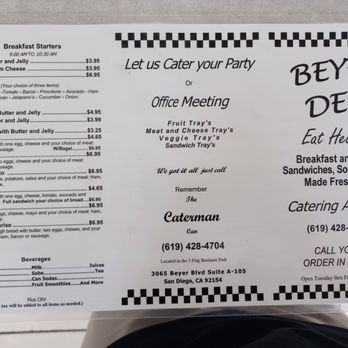 Breakfast Starters
9:00 AM TO 10:30 AM
r and Jelly $3.95
m Cheese $3.95
$6.95
(Your choice of three items)
-Tomato - Bacon - Provolone - Avocado - Ham
ican - Jalapeno's - Cucumber - Onion.
utter and Jelly $4.95
r and Jelly $3.99
with Butter and Jelly $3.25
with one egg, cheese and your choice of meat:
sausage. W/Bagel $6.95
$6.95
eggs, cheese and your choice of meat:
sausage.
co $6.95
e, potatoes, salsa and your choice of meat: Ham,
e.
$4.65
th one egg, cheese, tomato, avocado and
Full sandwich your choice of bread $6.95
$6.95
gs, cheese, mayo and your choice of meat: ham,
e.
rise $6.95
gh bread with butter, two eggs, cheese, and your
bacon or sausage.
Beverages
Milk Juices
Sobe Tea
Can Sodas
Fruit Smoothies And More
Plus CRV
tax will be added to all items as needed.)
Let us Cater your Party
Or
Office Meeting
Fruit Tray's
Meat and Cheese Tray's
Veggie Tray's
Sandwich Tray's
We got it all just call
Remember
The
Caterman
Can
(619) 428-4704
Located in the 3 Flag Business Park
3065 Beyer Blvd Suite A-105
San Diego, CA 92154
BEY
DE
Eat Hea
Breakfast an
Sandwiches, So
Made Fres
Catering A
(619) 428-
CALL YO
ORDER IN
Open Tuesday thru F